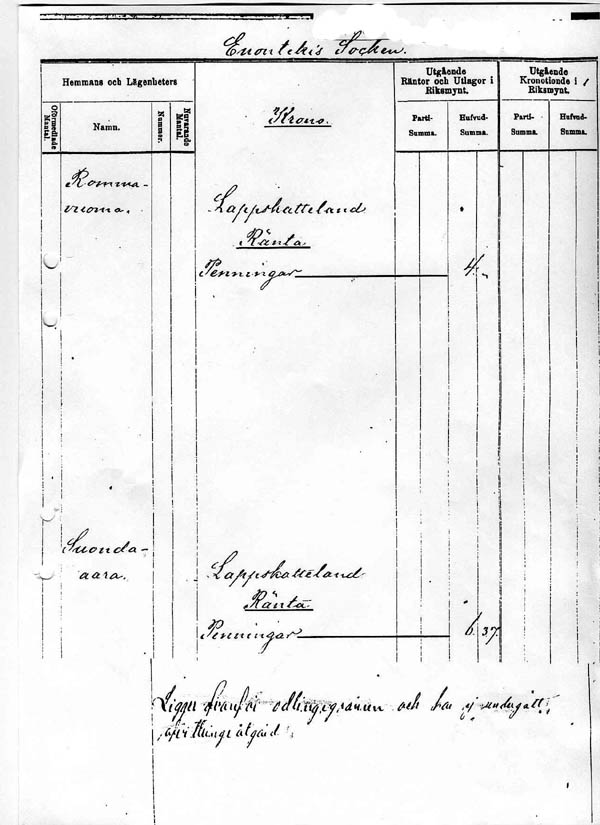 Enontekis Socken.
Hemmans och Lägenheters
Oförmedlade Mantal.
Namn.
Nummer.
Nuvarande Mantal.
Krono.
Utgående
Räntor och Utlagor i
Riksmynt.
Parti-
Summa.
Hufvud-
Summa.
Utgående
Kronotionde i
Riksmynt.
Parti-
Summa.
Hufvud-
Summa.
Romma-
vuoma.
Lappskatteland
Ränta
Penningar 4.
Suonda-
aara.
Lappskatteland
Ränta
Penningar 6. 37.
Ligger ofvanför odlingsgränsen och har ej undergått
afvittringsåtgärd